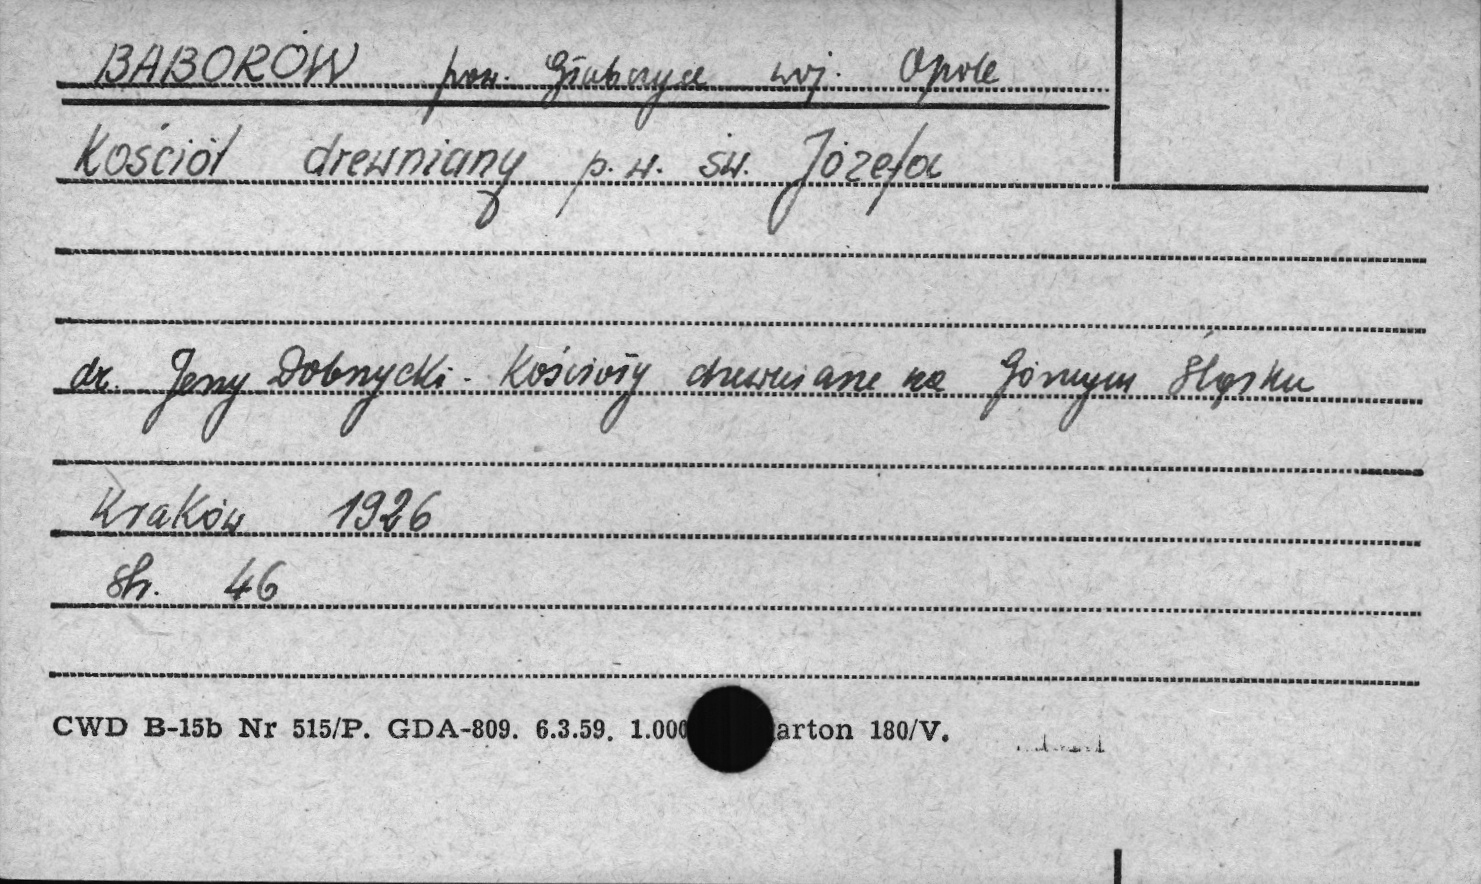 BABORÓW pow. Głubczyce woj. Opole
Kościół drewniany p.w. św. Józefa
dr. Jerzy Dobrzycki. Kościoły drewniane na Górnym Śląsku
Kraków 1926
str. 46
CWD B-15b Nr 515/P. GDA-809. 6.3.59. 1.000 arton 180/V.